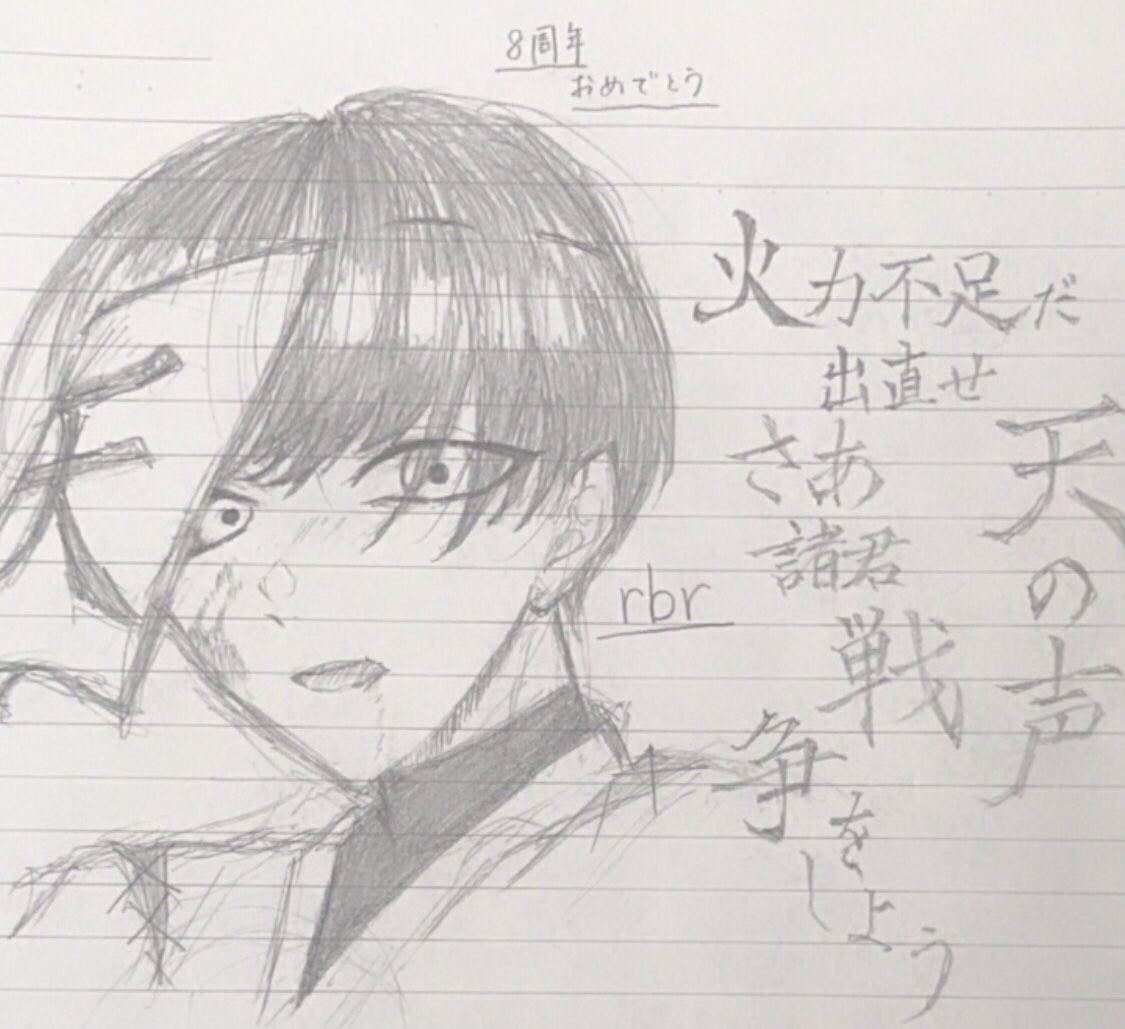 8周年
おめでとう
火力不足だ
出直せ
さあ
諸君
戦
争
をしよう
天の声
rbr